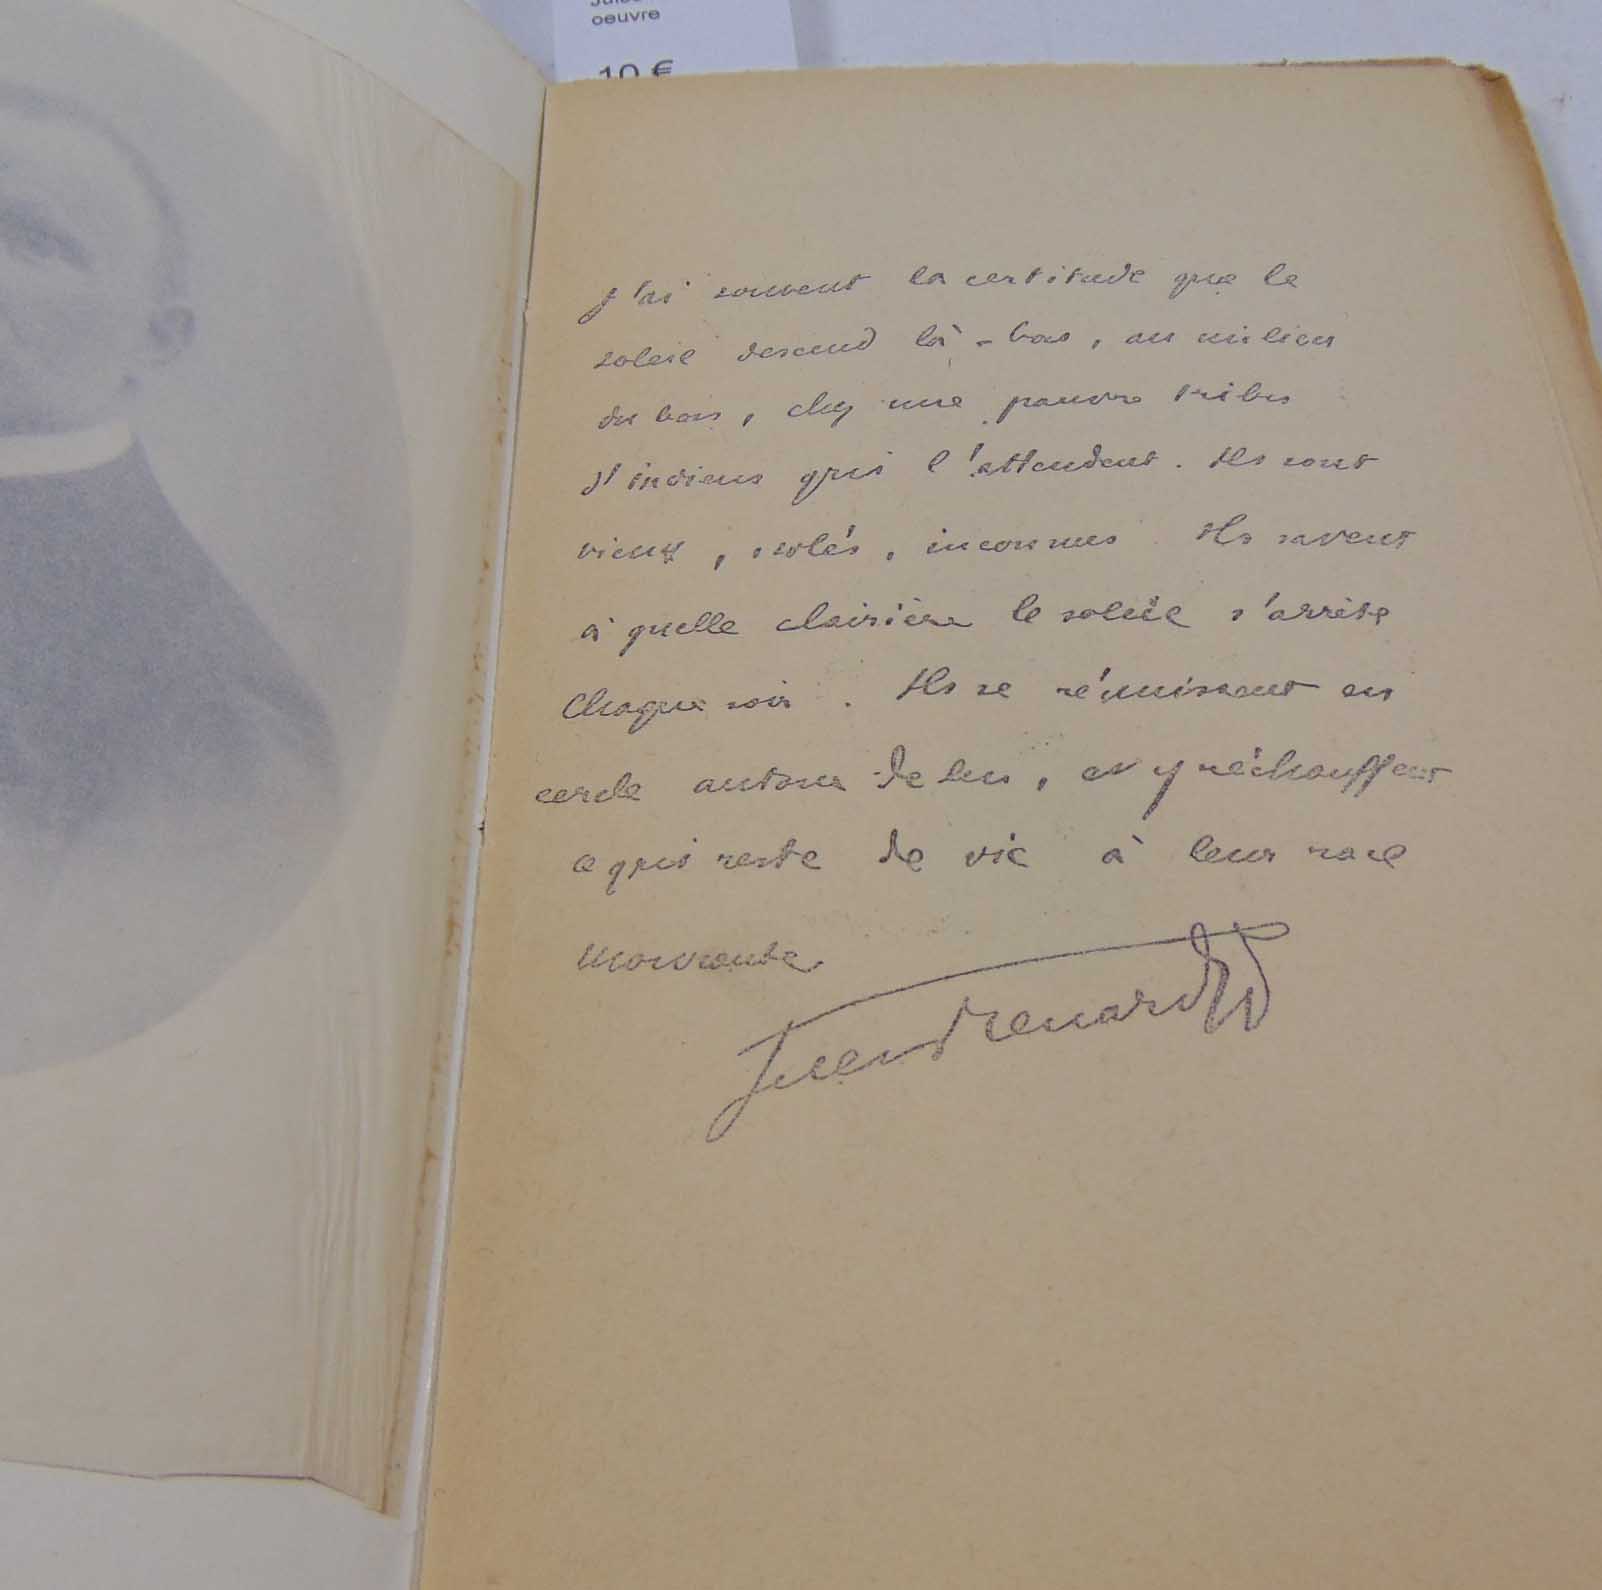 oeuvre
10 €
J'ai souvent la certitude que le
soleil descend là-bas, au milieu
du bois, chez une pauvre tribu
d'indiens qui l'attendent. Ils sont
vieux, isolés, inconnus. Ils savent
à quelle clairière le soleil s'arrête
chaque soir. Ils se réunissent en
cercle autour de lui, et y réchauffent
ce qui reste de vie à leur race
mourante.
Jules Renard